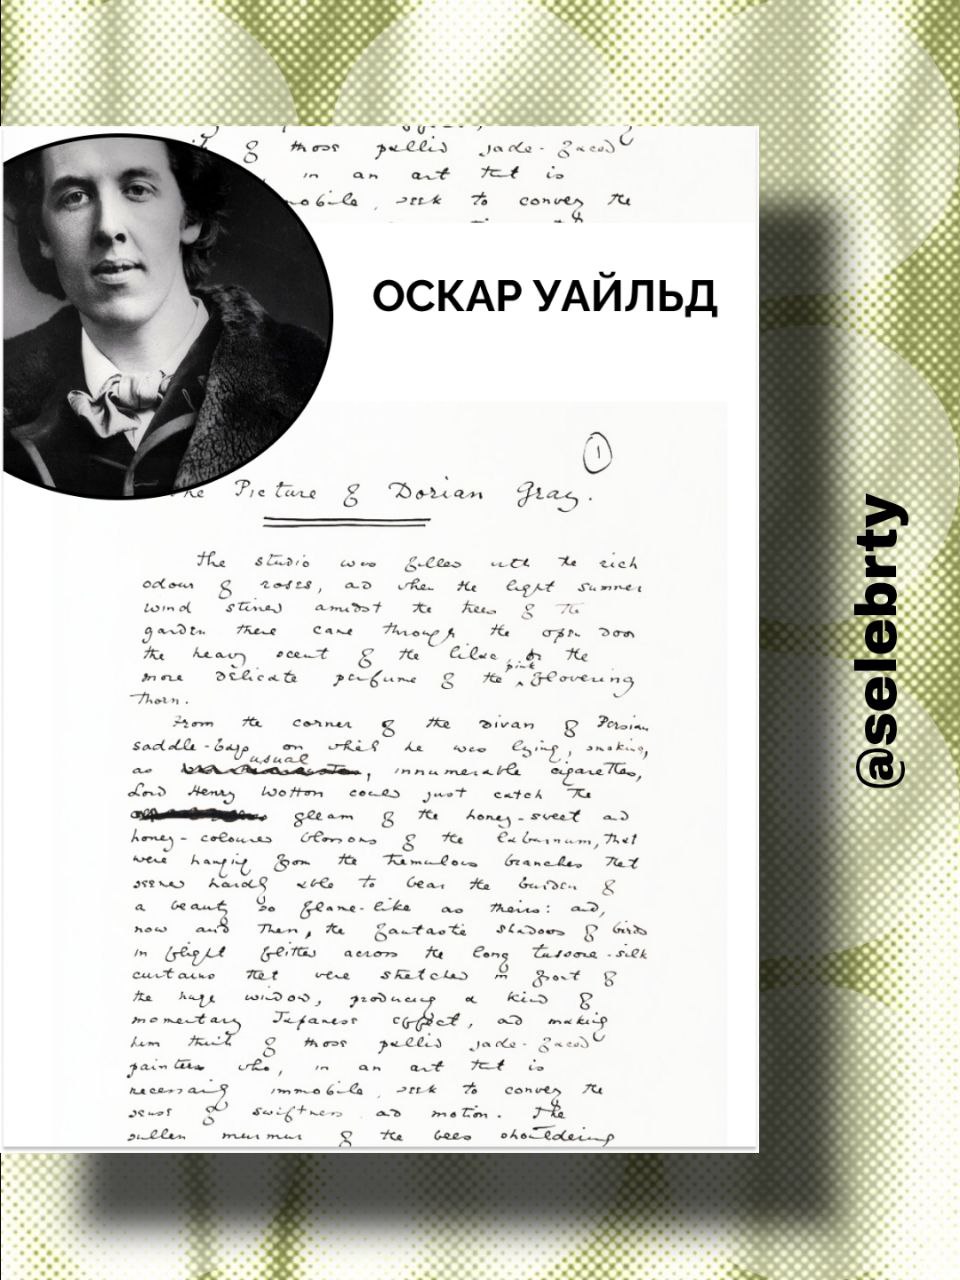 of those pallid jade-faced
in an art that is
immobile, seek to convey the
ОСКАР УАЙЛЬД
1
The Picture of Dorian Gray.
The studio was filled with the rich
odour of roses, and when the light summer
wind stirred amidst the trees of the
garden there came through the open door
the heavy scent of the lilac, or the
pink
more delicate perfume of the flowering
thorn.
From the corner of the divan of Persian
saddle-bags on which he was lying, smoking,
usual
as , innumerable cigarettes,
Lord Henry Wotton could just catch the
gleam of the honey-sweet and
honey-coloured blossoms of the laburnum, that
were hanging from the tremulous branches that
seemed hardly able to bear the burden of
a beauty so flame-like as theirs: and,
now and then, the fantastic shadows of birds
in flight flitted across the long tussore-silk
curtains that were stretched in front of
the huge window, producing a kind of
momentary Japanese effect, and making
him think of those pallid jade-faced
painters who, in an art that is
necessarily immobile, seek to convey the
sense of swiftness and motion. The
sullen murmur of the bees shouldering
@selebrty